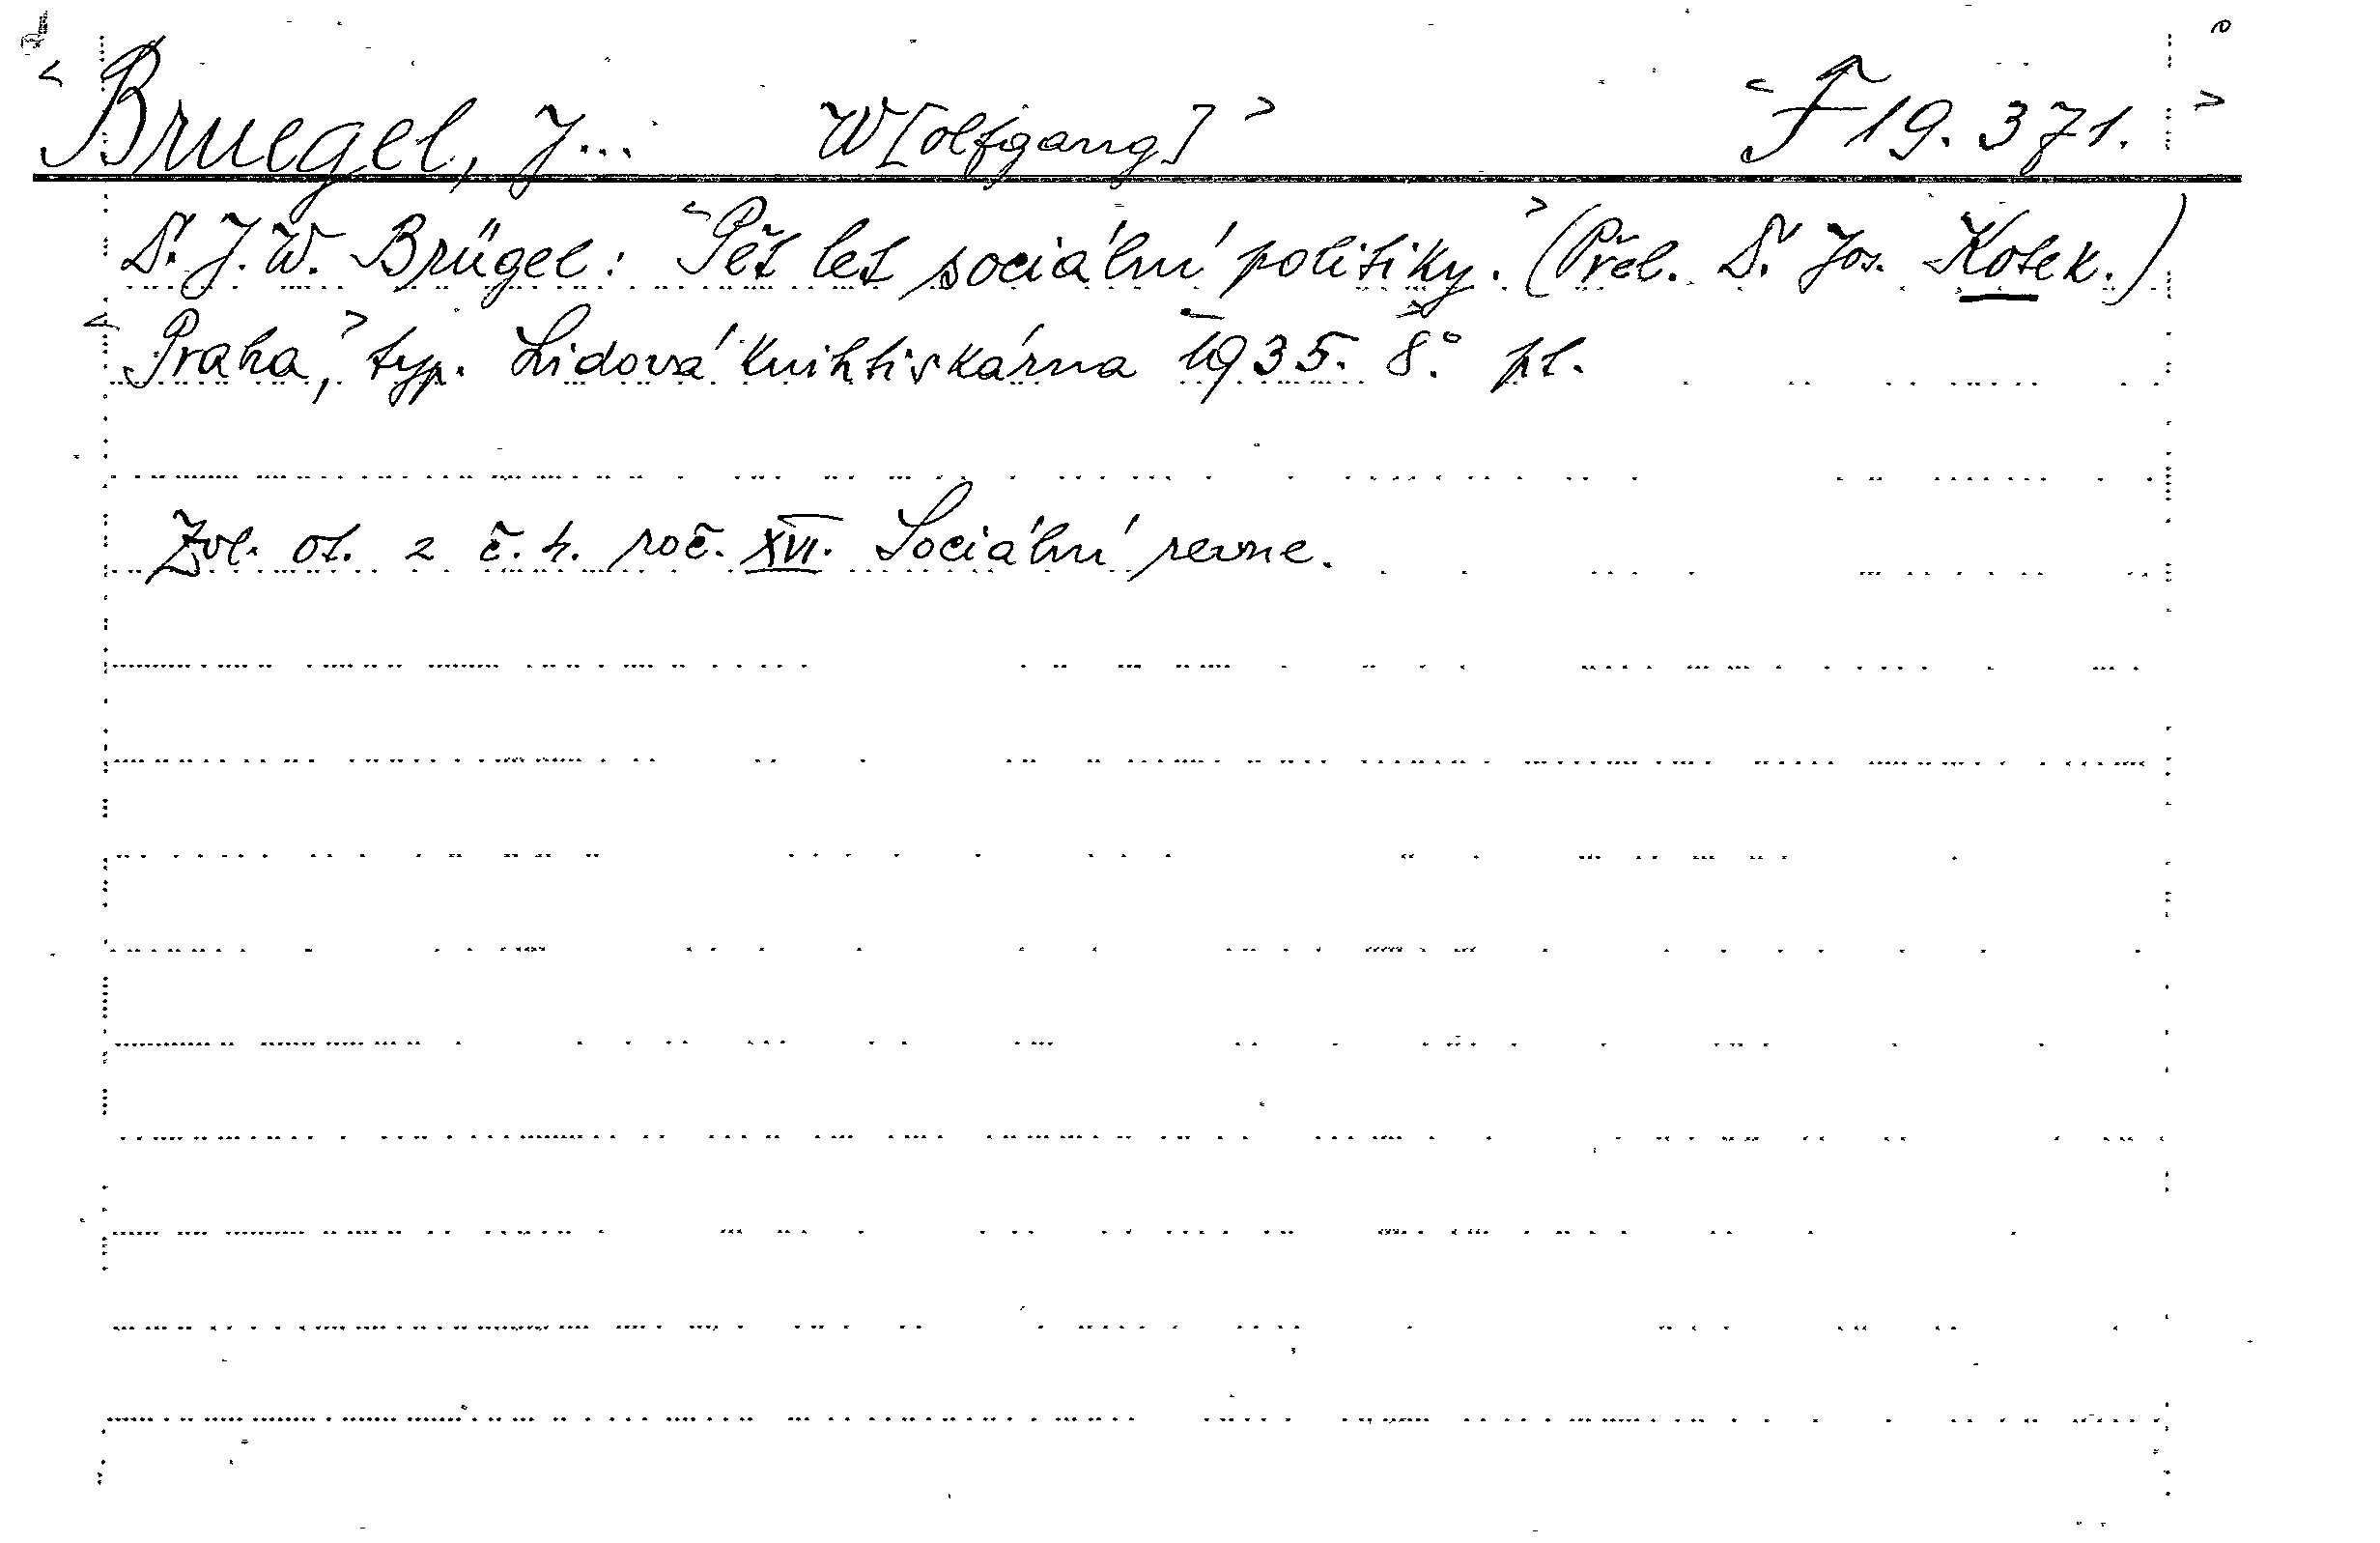 <Bruegel, J... W[olfgang]> <F 19.371.>
Dr. J. W. Brügel: <Pět let sociální politiky.> (Přel. Dr. Jos. Kotek.)
<Praha,> typ. Lidová knihtiskárna <1935.> 8°. pl.
Zvl. ot. z č. 4. roč. XVI. Sociální revue.